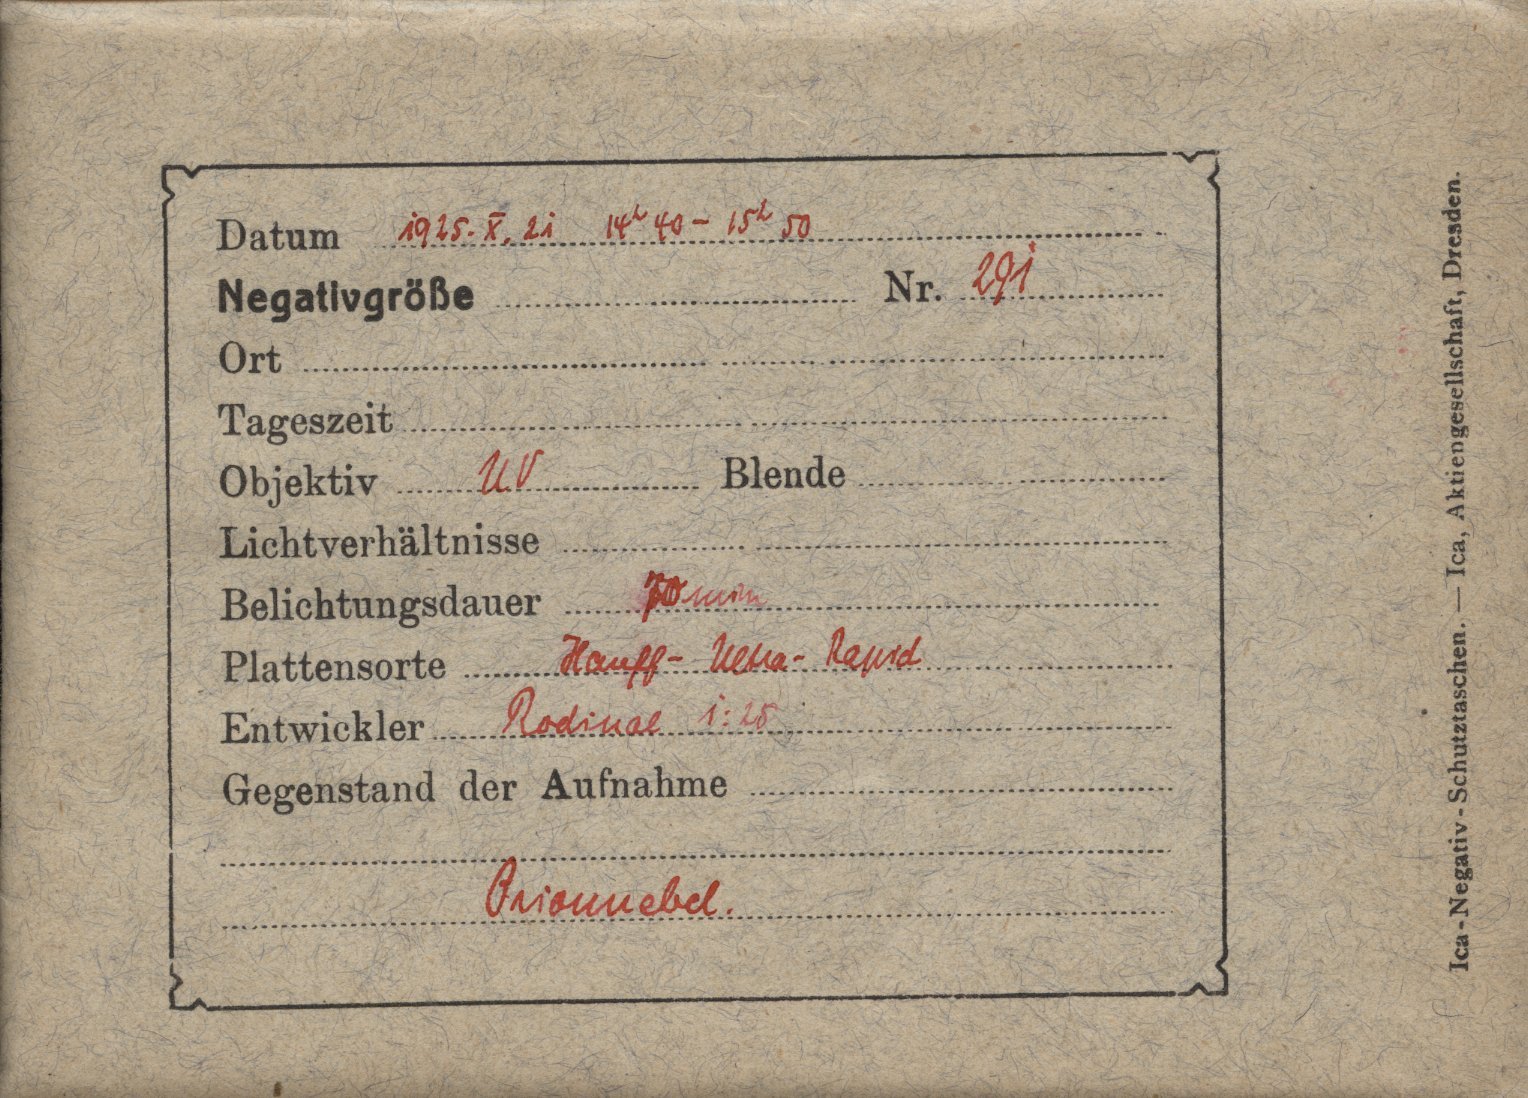 Datum 1925. X. 21 14h 40 – 15h 50
Negativgröße Nr. 291
Ort
Tageszeit
Objektiv UV Blende
Lichtverhältnisse
Belichtungsdauer 70 min
Plattensorte Hauff- Ultra- Rapid
Entwickler Rodinal 1:25
Gegenstand der Aufnahme
Orionnebel.
Ica-Negativ-Schutztaschen. — Ica, Aktiengesellschaft, Dresden.